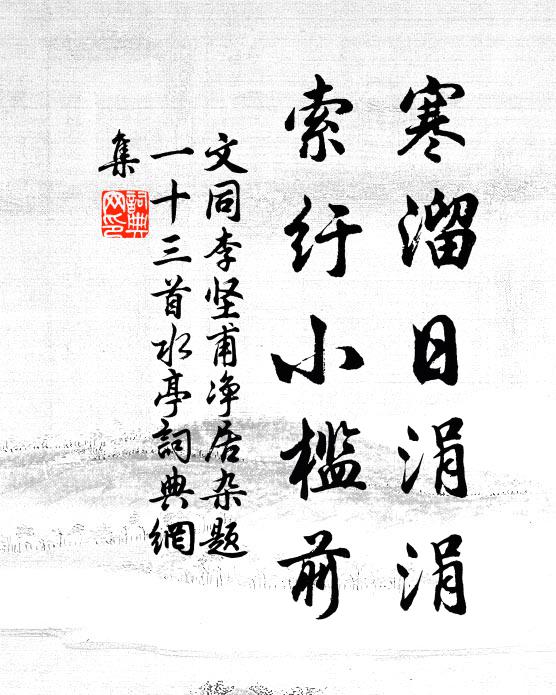 寒溜日涓涓
索纡小槛前
文同李坚甫净居杂题
一十三首水亭詞典網
集
詞典网印